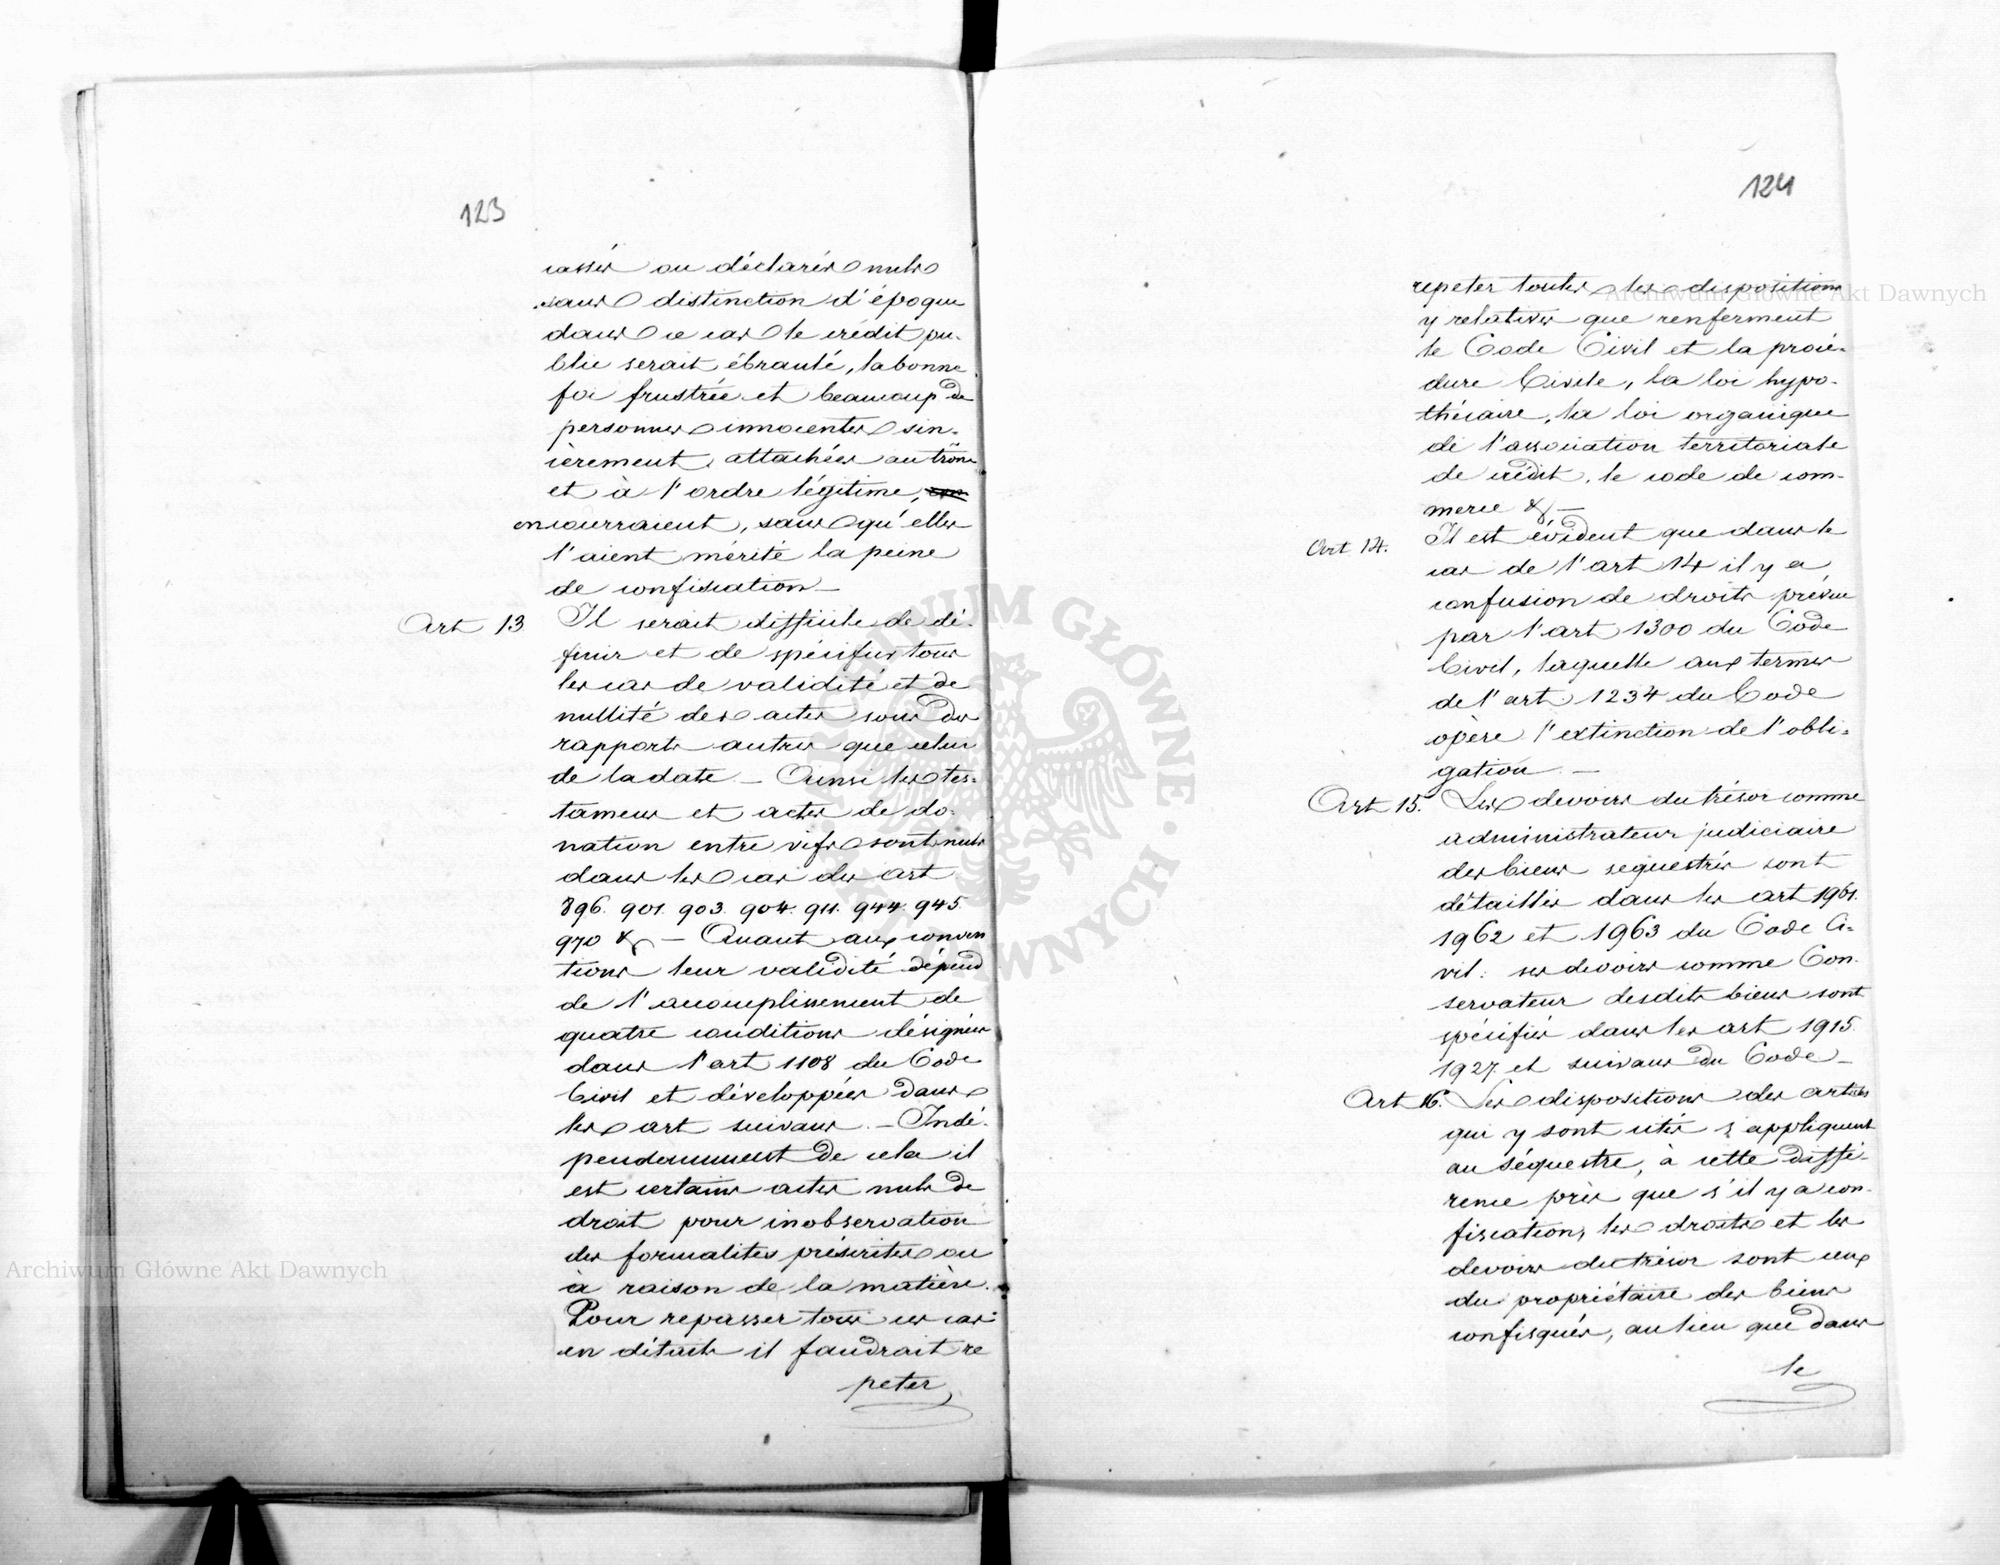 123
cassés ou déclarés nuls
sans distinction d'époque
dans ce cas le crédit pu-
blic serait ébranlé, la bonne
foi frustrée et beaucoup de
personnes innocentes sin-
cèrement attachées au trône
et à l'ordre légitime,
encourraient, sans qu'elles
l'aient mérité la peine
de confiscation —
Art 13 Il serait difficile de dé-
finir et de spécifier tous
les cas de validité et de
nullité des actes sous des
rapports autres que celui
de la date — Ainsi les tes-
tamens et actes de do-
nation entre vifs sont nuls
dans les cas des art
896. 901. 903. 904. 911. 944. 945.
970 & — Quant aux conven
tions leur validité dépend
de l'accomplissement de
quatre conditions désignées
dans l'art 1108 du Code
Civil et développées dans
les art suivans — Indé-
pendamment de cela il
est certains actes nuls de
droit pour inobservation
des formalités préscrites ou
à raison de la matière.
Pour repasser tous ces cas
en détails il faudrait re
peter
124
repeter toutes les dispositions
y relatives que renferment
le Code Civil et la procé-
dure Civile, la loi hypo-
thécaire, la loi organique
de l'association territoriale
de crédit, le code de com-
merce & —
Art 14. Il est évident que dans le
cas de l'art 14 il y a
confusion de droits prévue
par l'art 1300 du Code
Civil, laquelle aux termes
de l'art 1234 du Code
opère l'extinction de l'obli-
gation —
Art 15. Les devoirs du trésor comme
administrateur judiciaire
des biens sequestrés sont
détaillés dans les art 1961.
1962 et 1963 du Code Ci-
vil: ses devoirs comme Con-
servateur desdits biens sont
spécifiés dans les art 1915.
1927. et suivans du Code —
Art 16. Les dispositions des articles
qui y sont cités s'appliquent
au séquestre, à cette diffé-
rence près que s'il y a con-
fiscation, les droits et les
devoirs du trésor sont ceux
du propriétaire des biens
confisqués, au lieu que dans
le
Archiwum Główne Akt Dawnych
Archiwum Główne Akt Dawnych